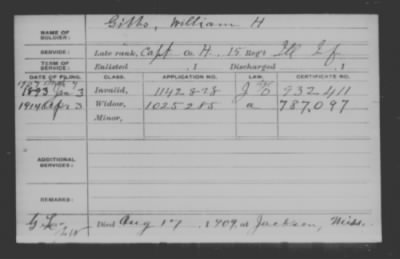 NAME OF SOLDIER: Gibbs, William H
SERVICE: Late rank, Capt Co. H, 15 Reg't Ill Inf
TERM OF SERVICE: Enlisted , 1 Discharged , 1
DATE OF FILING. CLASS. APPLICATION NO. LAW. CERTIFICATE NO.
1893 Jan 3 Invalid, 1142828 932411
1914 Apr 3 Widow, 1025285 a 787,097
Minor,
ADDITIONAL SERVICES:
REMARKS:
Died Aug 17, 1909, at Jackson, Miss.